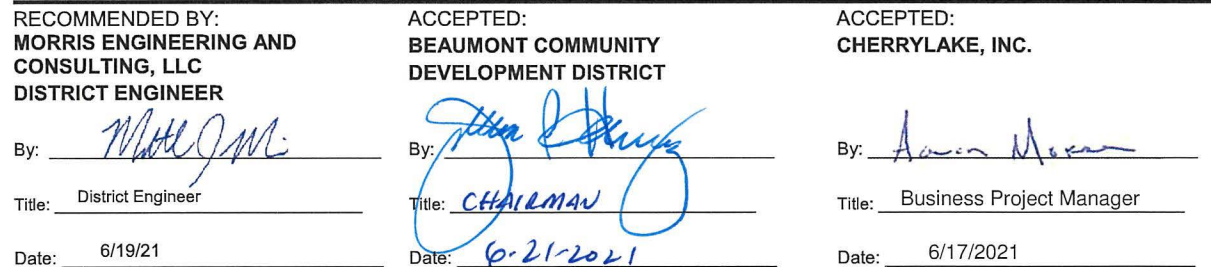 RECOMMENDED BY:
MORRIS ENGINEERING AND
CONSULTING, LLC
DISTRICT ENGINEER
By:
Title: District Engineer
Date: 6/19/21
ACCEPTED:
BEAUMONT COMMUNITY
DEVELOPMENT DISTRICT
By:
Title: CHAIRMAN
Date: 6-21-2021
ACCEPTED:
CHERRYLAKE, INC.
By: Aaron
Title: Business Project Manager
Date: 6/17/2021